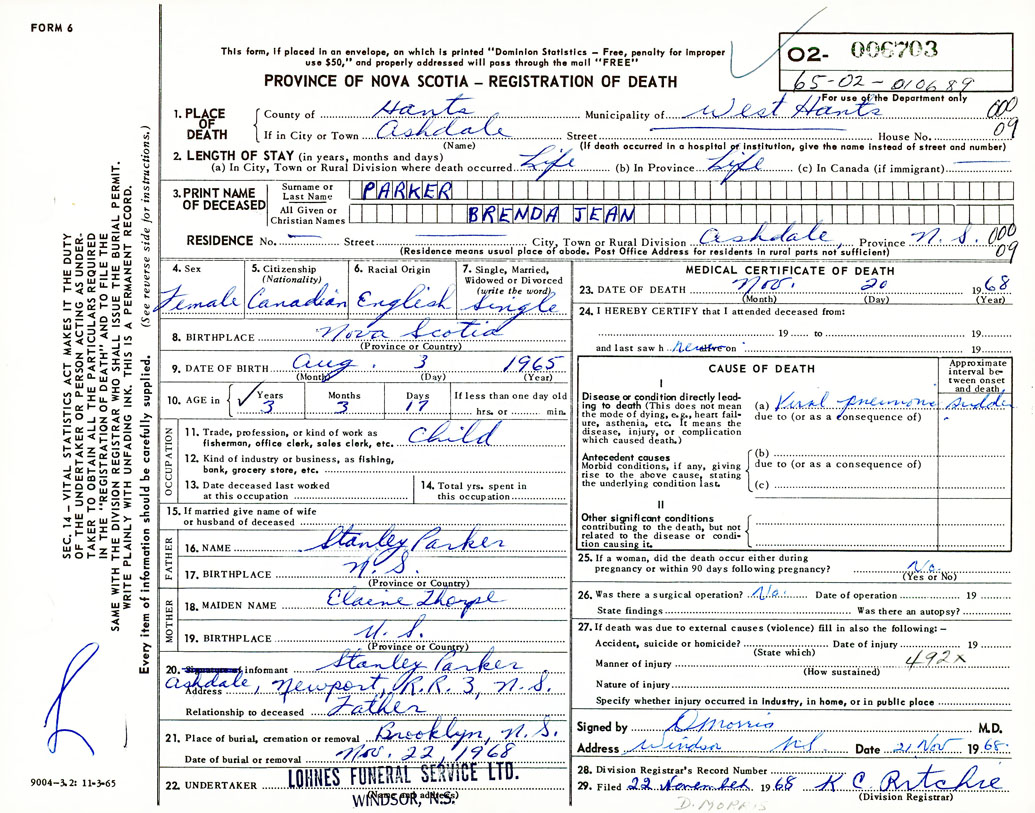 FORM 6
This form, if placed in an envelope, on which is printed "Dominion Statistics – Free, penalty for improper
use $50," and properly addressed will pass through the mail "FREE"
PROVINCE OF NOVA SCOTIA – REGISTRATION OF DEATH
02- 006703
65-02-010689
For use of the Department only
000
09
1. PLACE OF DEATH
County of Hants Municipality of West Hants
If in City or Town Ashdale Street House No.
(Name) (If death occurred in a hospital or institution, give the name instead of street and number)
2. LENGTH OF STAY (in years, months and days)
(a) In City, Town or Rural Division where death occurred Life (b) In Province Life (c) In Canada (if immigrant)
3. PRINT NAME OF DECEASED
Surname or Last Name PARKER
All Given or Christian Names BRENDA JEAN
RESIDENCE No. Street City, Town or Rural Division Ashdale, Province N.S. 000
09
(Residence means usual place of abode. Post Office Address for residents in rural parts not sufficient)
4. Sex Female
5. Citizenship (Nationality) Canadian
6. Racial Origin English
7. Single, Married, Widowed or Divorced (write the word) Single
8. BIRTHPLACE Nova Scotia
(Province or Country)
9. DATE OF BIRTH Aug. 3 1965
(Month) (Day) (Year)
10. AGE in Years Months Days If less than one day old
3 3 17 hrs. or min.
OCCUPATION
11. Trade, profession, or kind of work as
fisherman, office clerk, sales clerk, etc. Child
12. Kind of industry or business, as fishing,
bank, grocery store, etc.
13. Date deceased last worked
at this occupation
14. Total yrs. spent in
this occupation
15. If married give name of wife
or husband of deceased
FATHER
16. NAME Stanley Parker
17. BIRTHPLACE N.S.
(Province or Country)
MOTHER
18. MAIDEN NAME Elaine Thorpe
19. BIRTHPLACE N.S.
(Province or Country)
20. informant Stanley Parker
Address Ashdale, Newport, R.R. 3, N.S.
Relationship to deceased Father
21. Place of burial, cremation or removal Brooklyn, N.S.
Date of burial or removal Nov. 22, 1968
22. UNDERTAKER LOHNES FUNERAL SERVICE LTD.
(Name and address)
WINDSOR, N.S.
MEDICAL CERTIFICATE OF DEATH
23. DATE OF DEATH Nov. 20 1968
(Month) (Day) (Year)
24. I HEREBY CERTIFY that I attended deceased from:
19 to 19
and last saw h on 19
CAUSE OF DEATH
Approximate interval between onset and death
I
Disease or condition directly lead-
ing to death (This does not mean
the mode of dying, e.g., heart fail-
ure, asthenia, etc. It means the
disease, injury, or complication
which caused death.)
(a) Viral pneumonia sudden
due to (or as a consequence of)
Antecedent causes
Morbid conditions, if any, giving
rise to the above cause, stating
the underlying condition last.
(b)
due to (or as a consequence of)
(c)
II
Other significant conditions
contributing to the death, but not
related to the disease or condi-
tion causing it.
25. If a woman, did the death occur either during
pregnancy or within 90 days following pregnancy? No.
(Yes or No)
26. Was there a surgical operation? No. Date of operation 19
State findings Was there an autopsy?
27. If death was due to external causes (violence) fill in also the following: –
Accident, suicide or homicide? Date of injury 19
(State which)
Manner of injury 492x
(How sustained)
Nature of injury
Specify whether injury occurred in Industry, in home, or in public place
Signed by D Morris M.D.
Address Windsor NS Date 21 Nov 1968.
28. Division Registrar's Record Number
29. Filed 22 November 1968 K C Ritchie
D. MORRIS (Division Registrar)
SEC. 14 – VITAL STATISTICS ACT MAKES IT THE DUTY
OF THE UNDERTAKER OR PERSON ACTING AS UNDER-
TAKER TO OBTAIN ALL THE PARTICULARS REQUIRED
IN THE "REGISTRATION OF DEATH" AND TO FILE THE
SAME WITH THE DIVISION REGISTRAR WHO SHALL ISSUE THE BURIAL PERMIT.
WRITE PLAINLY WITH UNFADING INK. THIS IS A PERMANENT RECORD.
Every item of information should be carefully supplied. (See reverse side for instructions.)
9004–3.2: 11-3-65